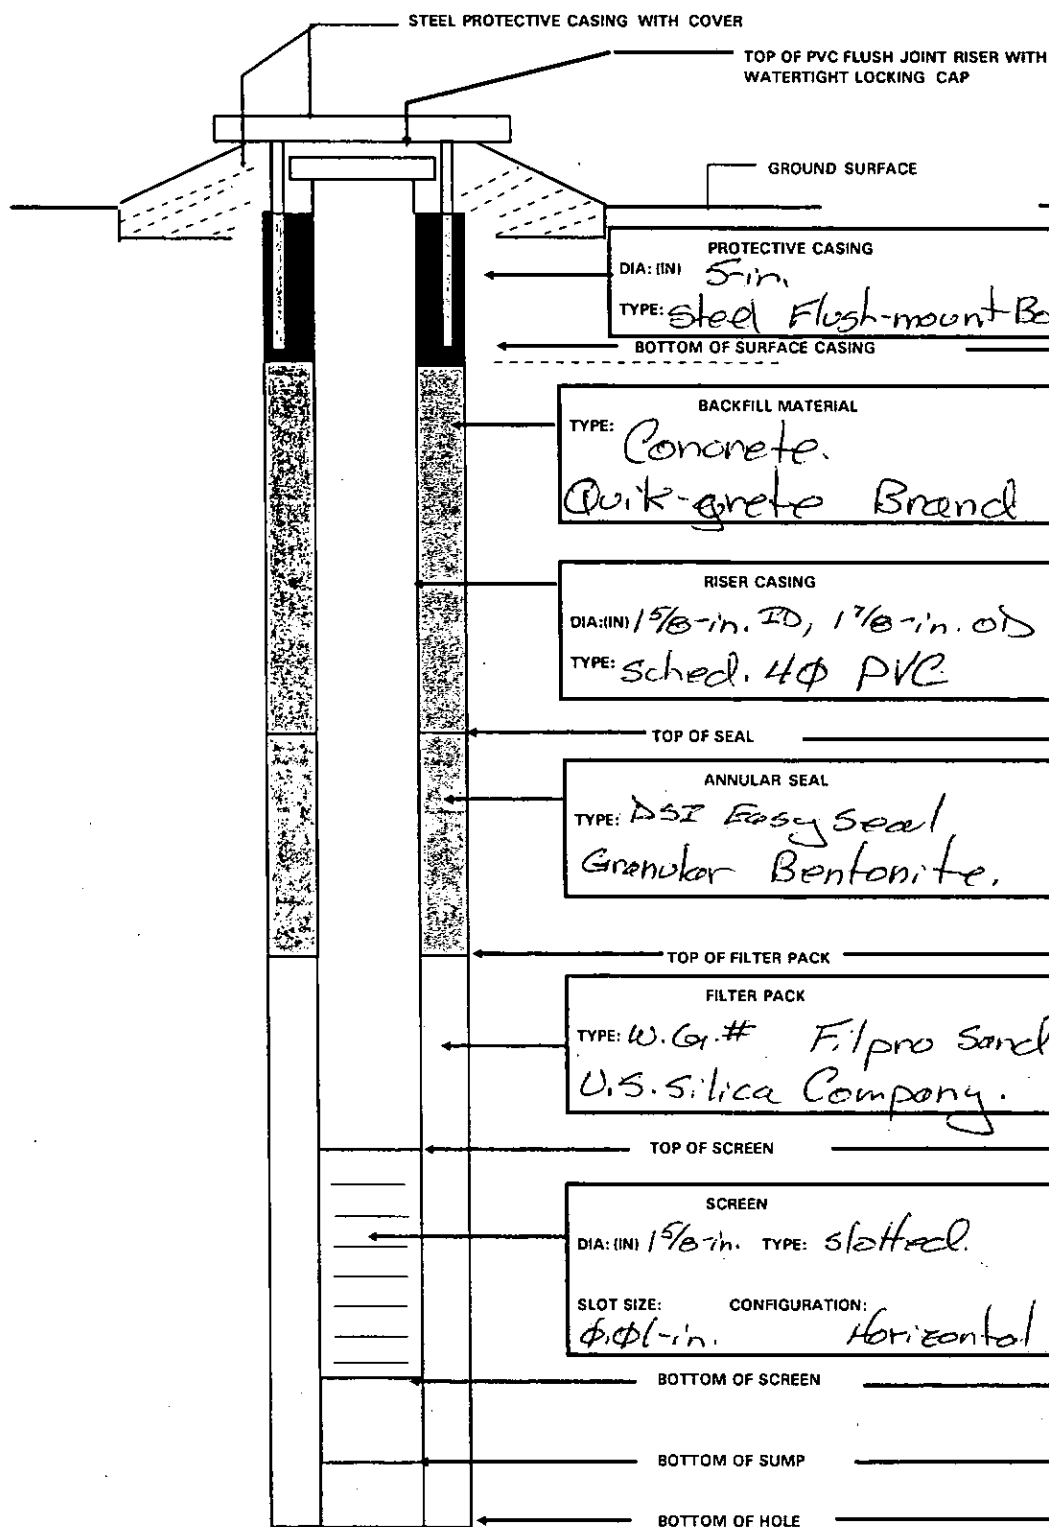 STEEL PROTECTIVE CASING WITH COVER
TOP OF PVC FLUSH JOINT RISER WITH
WATERTIGHT LOCKING CAP
GROUND SURFACE
PROTECTIVE CASING
DIA: (IN) 5-in.
TYPE: Steel Flush-mount Bo
BOTTOM OF SURFACE CASING
BACKFILL MATERIAL
TYPE: Concrete.
Quik-grete Brand
RISER CASING
DIA:(IN) 1 5/8-in. ID, 1 7/8-in. OD
TYPE: Sched. 4Ø PVC
TOP OF SEAL
ANNULAR SEAL
TYPE: DSI Easy Seal
Granular Bentonite.
TOP OF FILTER PACK
FILTER PACK
TYPE: W.G.# Filpro Sand
U.S. Silica Company.
TOP OF SCREEN
SCREEN
DIA: (IN) 1 5/8-in. TYPE: Slotted.
SLOT SIZE: CONFIGURATION:
Ø.Ø1-in. Horizontal
BOTTOM OF SCREEN
BOTTOM OF SUMP
BOTTOM OF HOLE